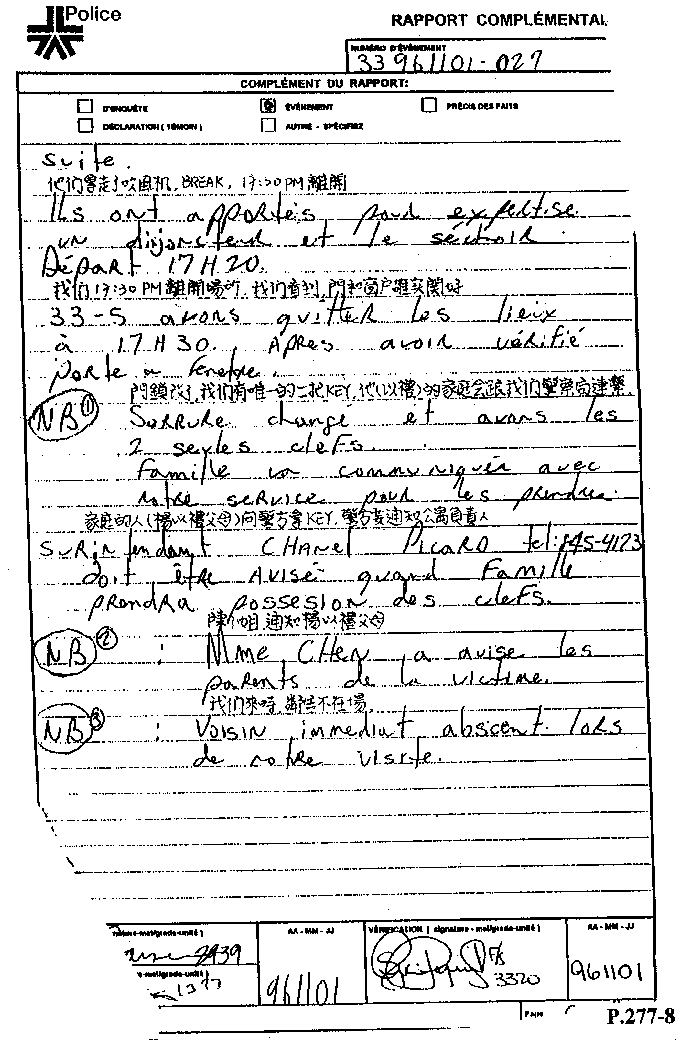 Police
RAPPORT COMPLÉMENTAL
NUMÉRO D'ÉVÉNEMENT
33 961101-027
COMPLÉMENT DU RAPPORT:
D'ENQUÊTE
ÉVÉNEMENT
PRÉCIS DES FAITS
DÉCLARATION (TÉMOIN)
AUTRE - SPÉCIFIEZ
Suite.
他们拿走了吹風机, BREAK, 17:30 PM 離開
Ils ont apportés pour expertise
un disjoncteur et le séchoir.
Départ 17H20.
我们17:30 PM 離開場所, 我们看到, 門和窗户確实関好
33-5 avons quitter les lieux
à 17H30. Après avoir vérifié
porte fenêtre.
門鎖改了, 我们有唯一的二把KEY, 他(以禮)的家庭会跟我们警察局連繫
NB ①
Serrure changé et avons les
2 seules clefs.
Famille va communiquer avec
notre service pour les prendre.
家庭的人(楊以禮父母)向警方拿KEY, 警方要通知公寓負責人
Surintendant CHanel Picard tel: 845-4173
doit être Avisé quand Famille
prendra possesion des clefs.
陳小姐通知楊以禮父母
NB ② : Mme CHen a avisé les
parents de la victime.
我们來時, 鄰居不在場.
NB ③ : Voisin immédiat abscent lors
de notre visite.
-matgrade-unité)
AA - MM - JJ
VÉRIFICATION ( signature - matgrade-unité )
AA - MM - JJ
2939
-matgrade-unité )
961101
3320
961101
PAGE
P.277-8